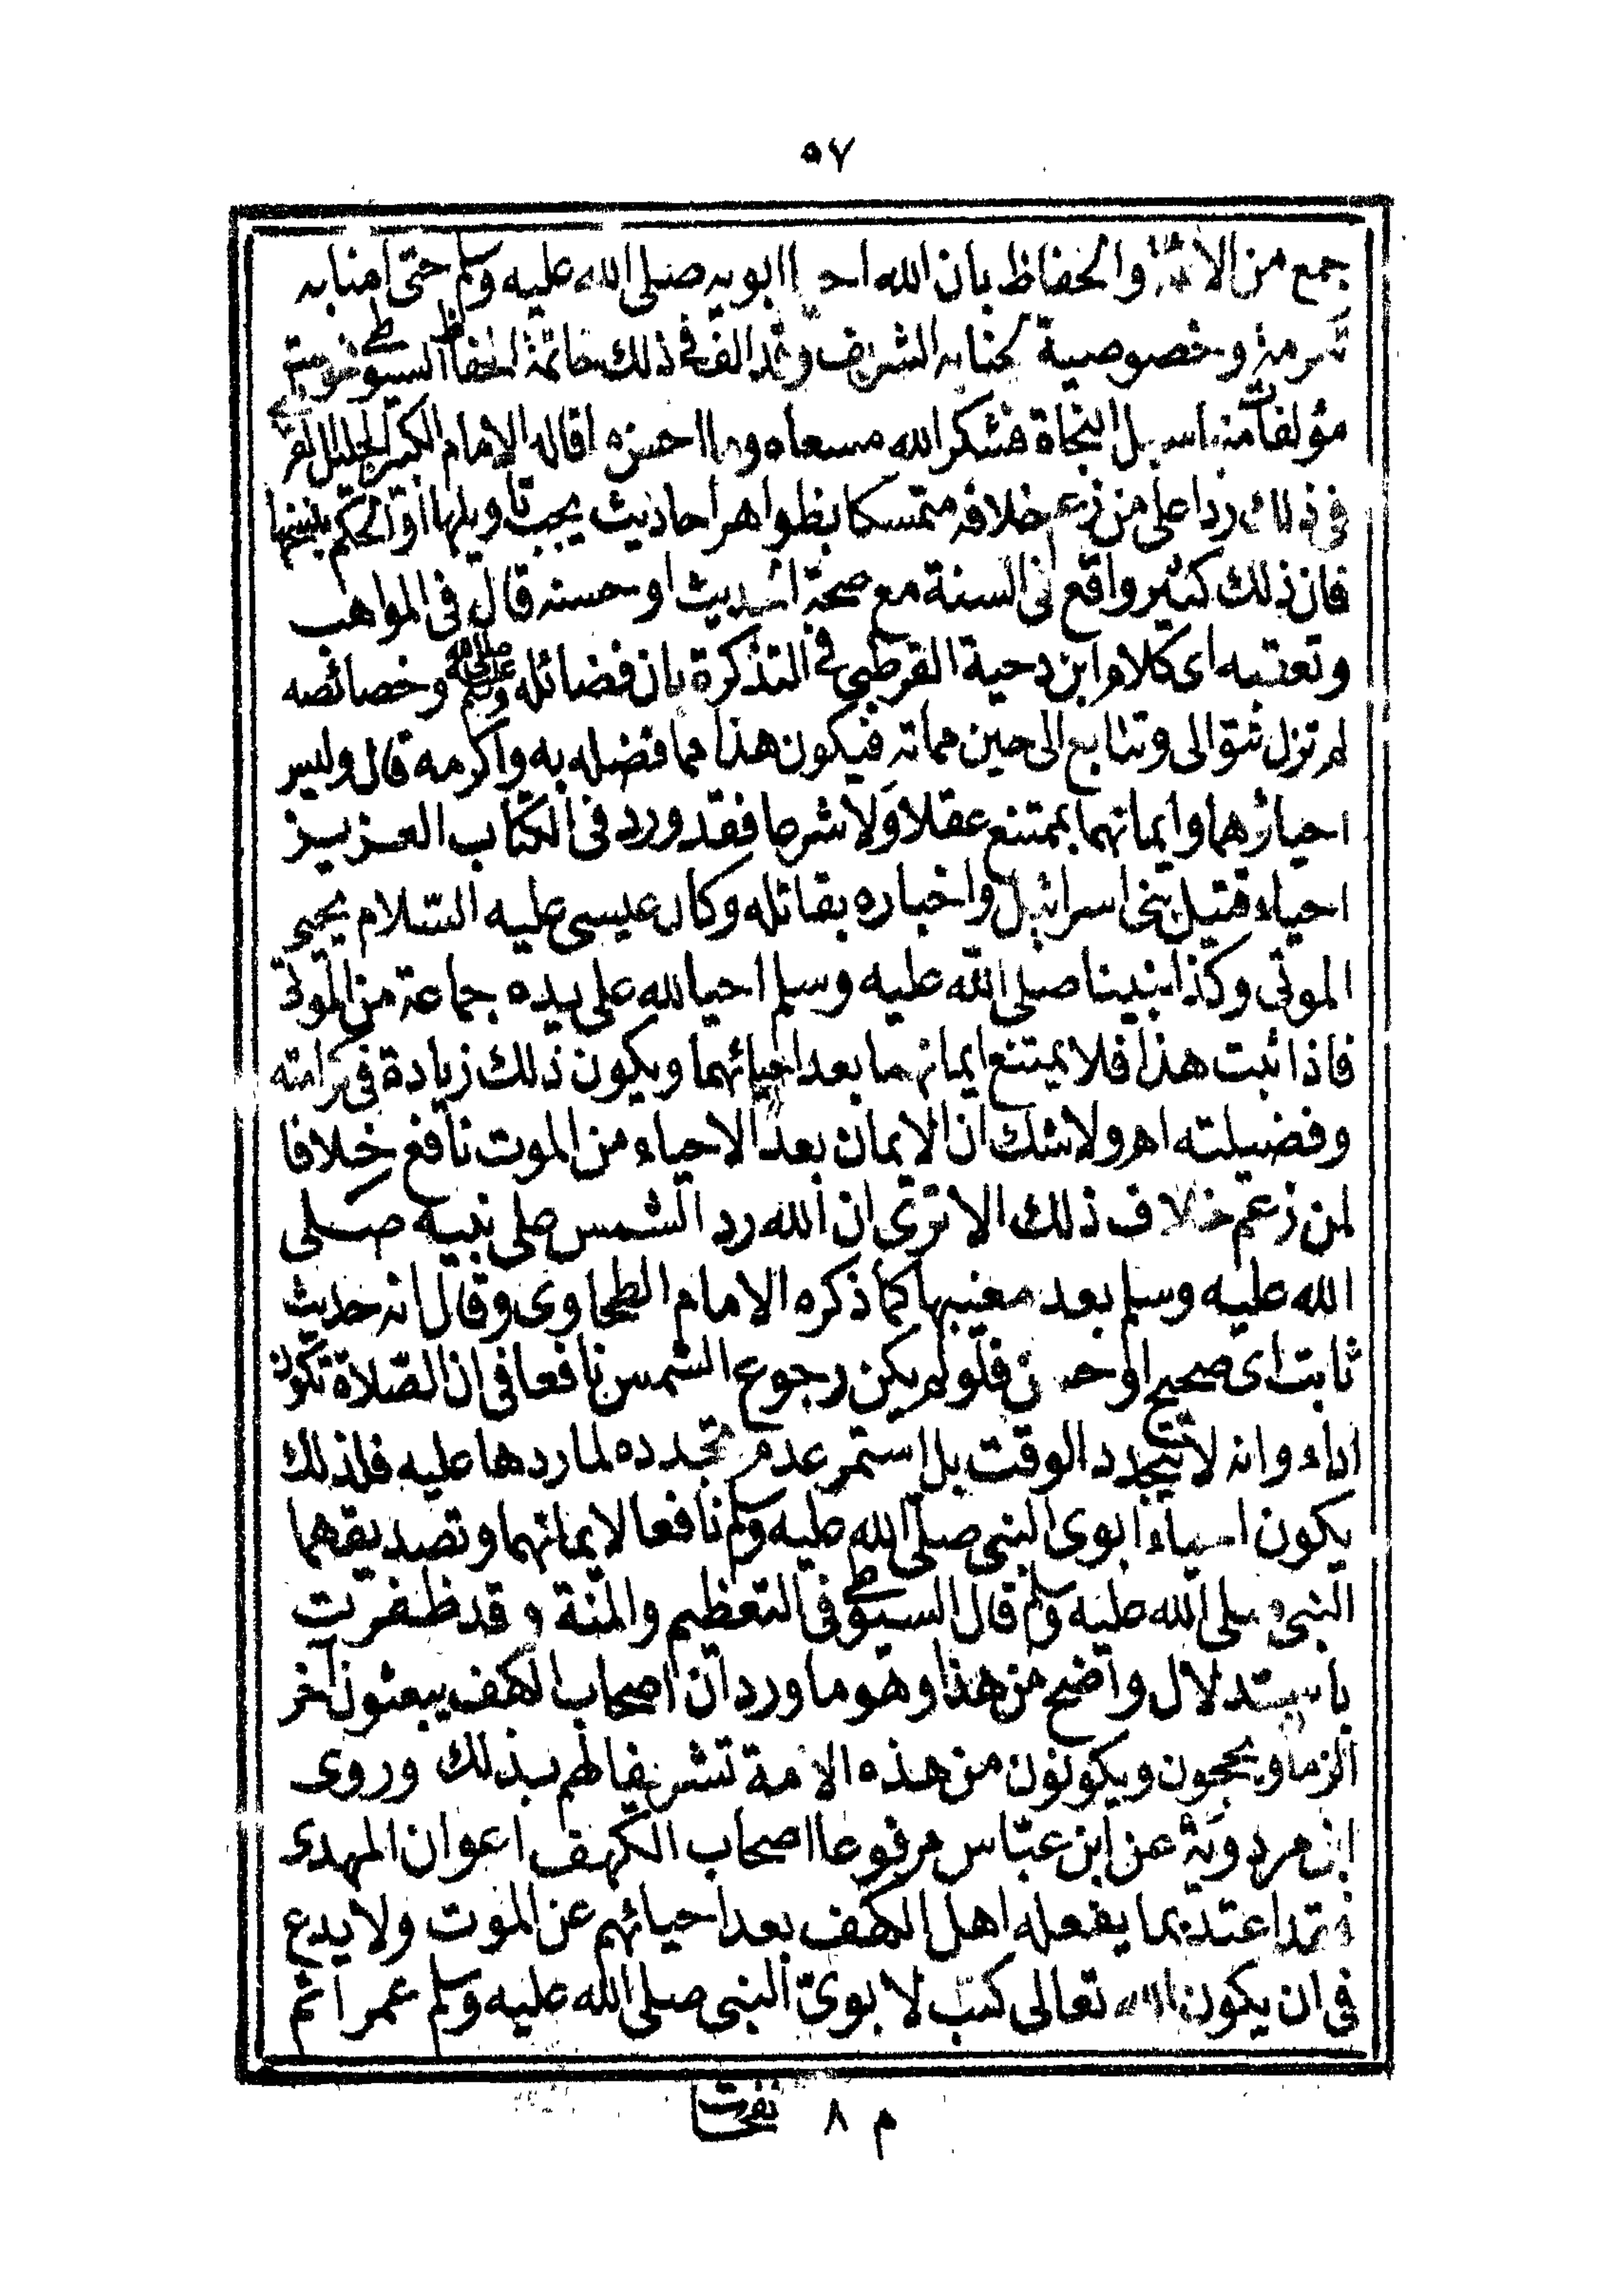 ٥٧
جمع من الائمة والحفاظ بان الله احيا ابويه صلى الله عليه وسلم حتى امنا به
كرمة وخصوصية لجنابه الشريف وقد الف في ذلك خاتمة الحفاظ السيوطي نحو ستة
مؤلفات منها سبل النجاة فشكر الله مسعاه وما احسن ما قاله الامام الكبير الجليل القرطبي
في ذلك ردا على من زعم خلافه متمسكا بظواهر احاديث يجب تاويلها او الحكم بنسخها
فان ذلك كثير واقع في السنة مع صحة الحديث او حسنه قال في المواهب
وتعقبه اى كلام ابن دحية القرطبي في التذكرة بان فضائله صلى الله عليه وسلم وخصائصه
لم تزل تتوالى وتتابع الى حين مماته فيكون هذا مما فضله به واكرمه قال وليس
احياؤهما وايمانهما بممتنع عقلا ولا شرعا فقد ورد في الكتاب العزيز
احياء قتيل بنى اسرائيل واخباره بقاتله وكان عيسى عليه السلام يحيى
الموتى وكذا نبينا صلى الله عليه وسلم احيا الله على يده جماعة من الموتى
فاذا ثبت هذا فلا يمتنع ايمانهما بعد احيائهما ويكون ذلك زيادة في كرامته
وفضيلته اهـ ولا شك ان الايمان بعد الاحياء من الموت نافع خلافا
لمن زعم خلاف ذلك الا ترى ان الله رد الشمس على نبيه صلى
الله عليه وسلم بعد مغيبها كما ذكره الامام الطحاوى وقال انه حديث
ثابت اى صحيح او حسن فلو لم يكن رجوع الشمس نافعا فى ان الصلاة تكون
اداء وانه لا يتجدد الوقت بل استمر عدم تجدده لما ردها عليه فلذلك
يكون احياء ابوى النبى صلى الله عليه وسلم نافعا لايمانهما وتصديقهما
النبى صلى الله عليه وسلم قال السيوطي فى التعظيم والمنة وقد ظفرت
باستدلال واضح من هذا وهو ما ورد ان اصحاب الكهف يبعثون آخر
الزمان ويحجون ويكونون من هذه الامة تشريفا لهم بذلك وروى
ابن مردويه عن ابن عباس مرفوعا اصحاب الكهف اعوان المهدى
فقد اعتد بما يفعله اهل الكهف بعد احيائهم عن الموت ولا بدع
فى ان يكون الله تعالى كتب لا بوىّ النبى صلى الله عليه وسلم عمرا ثم
م ٨ نفحات